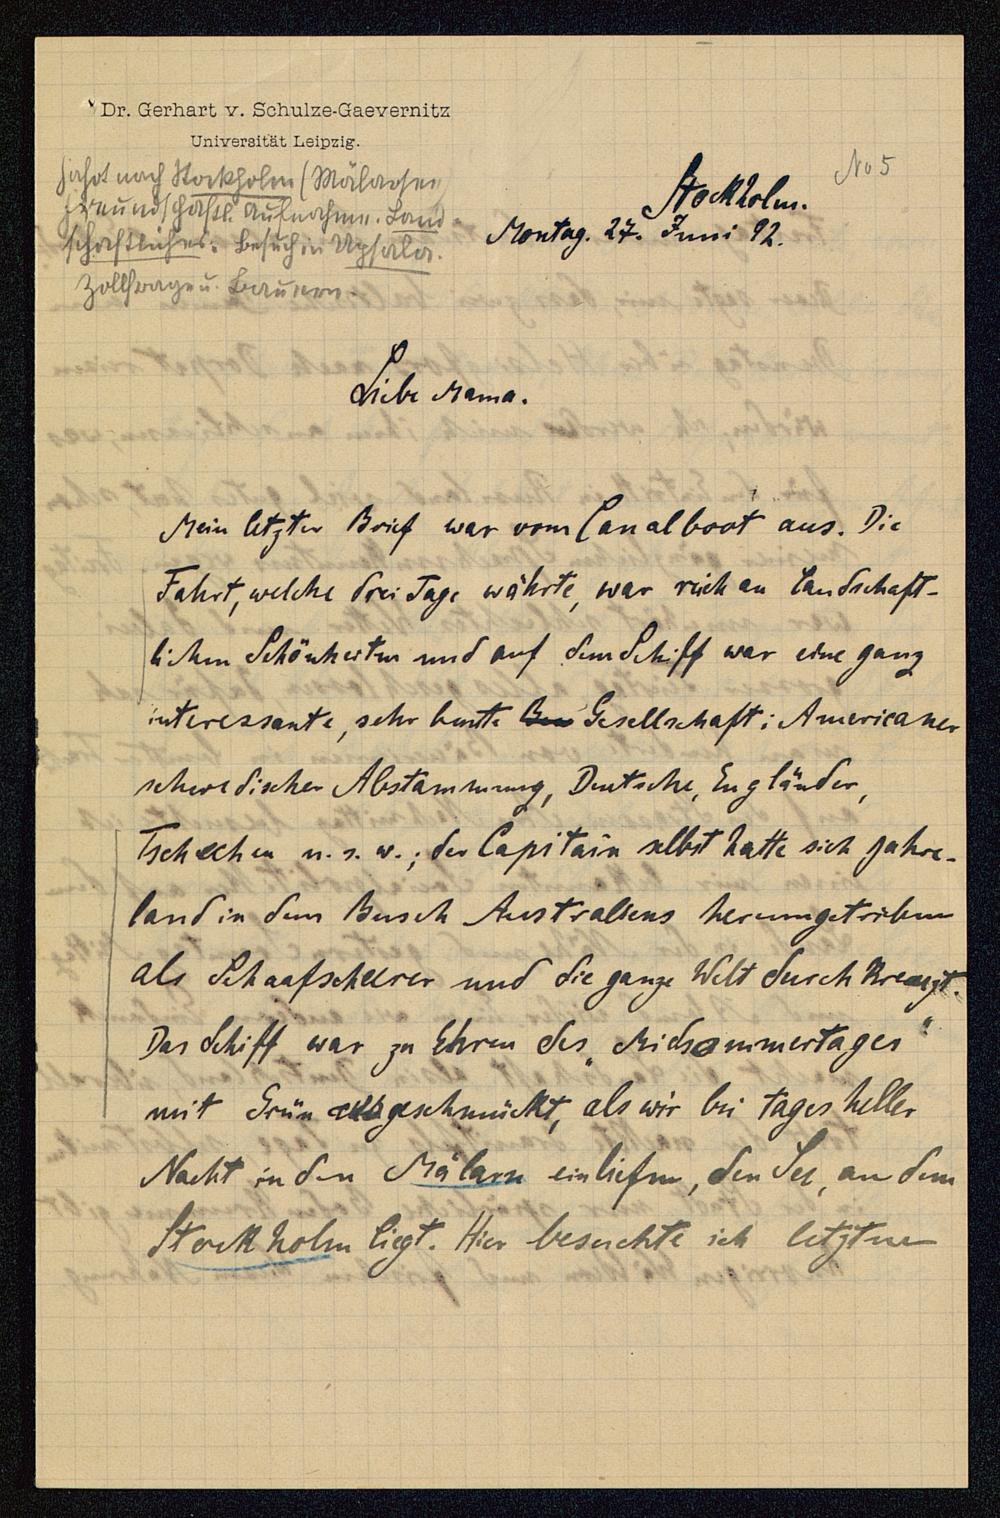 Dr. Gerhart v. Schulze-Gaevernitz
Universität Leipzig.
No 5
Fahrt nach Stockholm (Mälarsee)
freundschaftl. Aufnahme. Land-
schaftliches. Besuch in Upsala.
Zollfrage u. Bauern.
Stockholm.
Montag. 27. Juni 92.
Liebe Mama.
Mein letzter Brief war vom Canalboot aus. Die
Fahrt, welche drei Tage währte, war reich an landschaft-
lichen Schönheiten und auf dem Schiff war eine ganz
interessante, sehr bunte Gesellschaft: Americaner
schwedischer Abstammung, Deutsche, Engländer,
Tschechen u. s. w.; der Capitän selbst hatte sich jahre-
land in dem Busch Australiens herumgetrieben
als Schaafscheerer und die ganze Welt durchkreuzt.
Das Schiff war zu Ehren des „Midsommertages"
mit Grün geschmückt, als wir bei tagesheller
Nacht in den Mälarn einliefen, den See, an dem
Stockholm liegt. Hier besuchte ich letzten